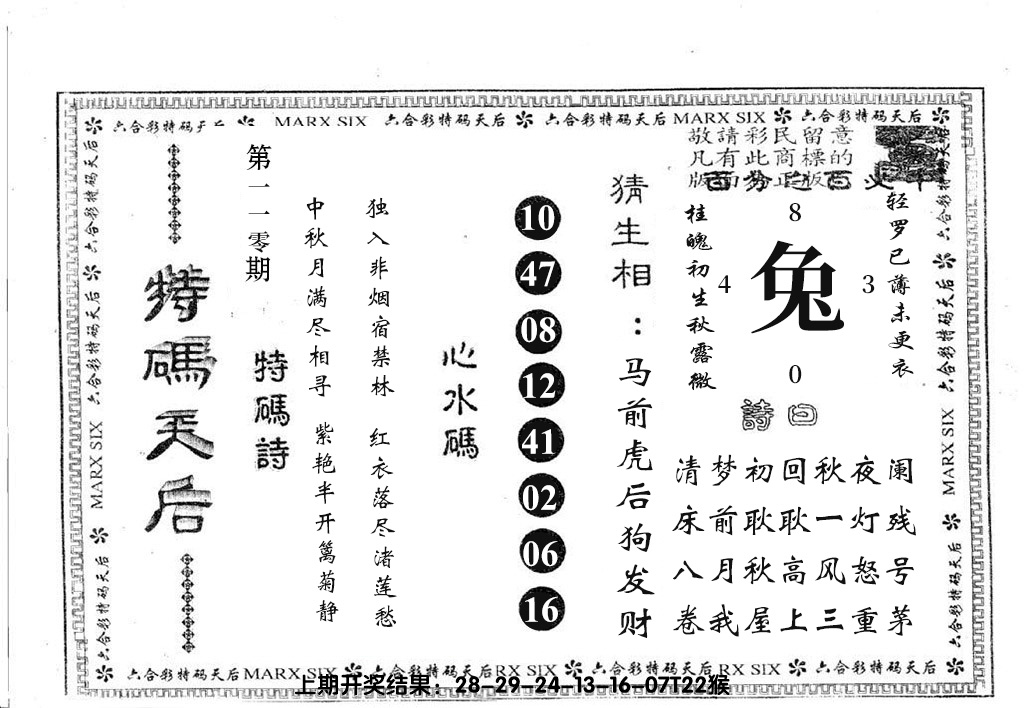 六合彩特码天后 MARX SIX 六合彩特码天后 六合彩特码天后 MARX SIX 六合彩特码天后
特碼天后
第一一零期
特碼詩
中秋月满尽相寻 紫艳半开篱菊静
独入非烟宿禁林 红衣落尽渚莲愁
心水碼
10
47
08
12
41
02
06
16
猜生相：马前虎后狗发财
敬請彩民留意
凡有此商標的
桂魄初生秋露微
8
4 兔 3
0
轻罗已薄未更衣
詩曰
清梦初回秋夜阑
床前耿耿一灯残
八月秋高风怒号
卷我屋上三重茅
六合彩特码天后 六合彩特码天后 MARX SIX 六合彩特码天后
六合彩特码天后 六合彩特码天后 MARX SIX 六合彩特码天后
六合彩特码天后 MARX SIX 六合彩特码天后 RX SIX 六合彩特码天后 RX SIX 六合彩特码天后
上期开奖结果：28-29-24-13-16-07T22猴